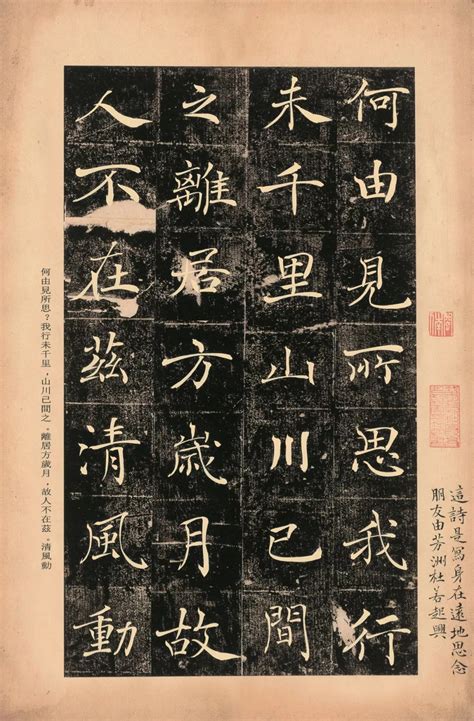 何由見所思我行
未千里山川已間
之離居方歲月故
人不在茲清風動
這詩是寫身在遠地思念
朋友由芳洲杜若起興
何由見所思？我行未千里，山川已間之。離居方歲月，故人不在茲。清風動